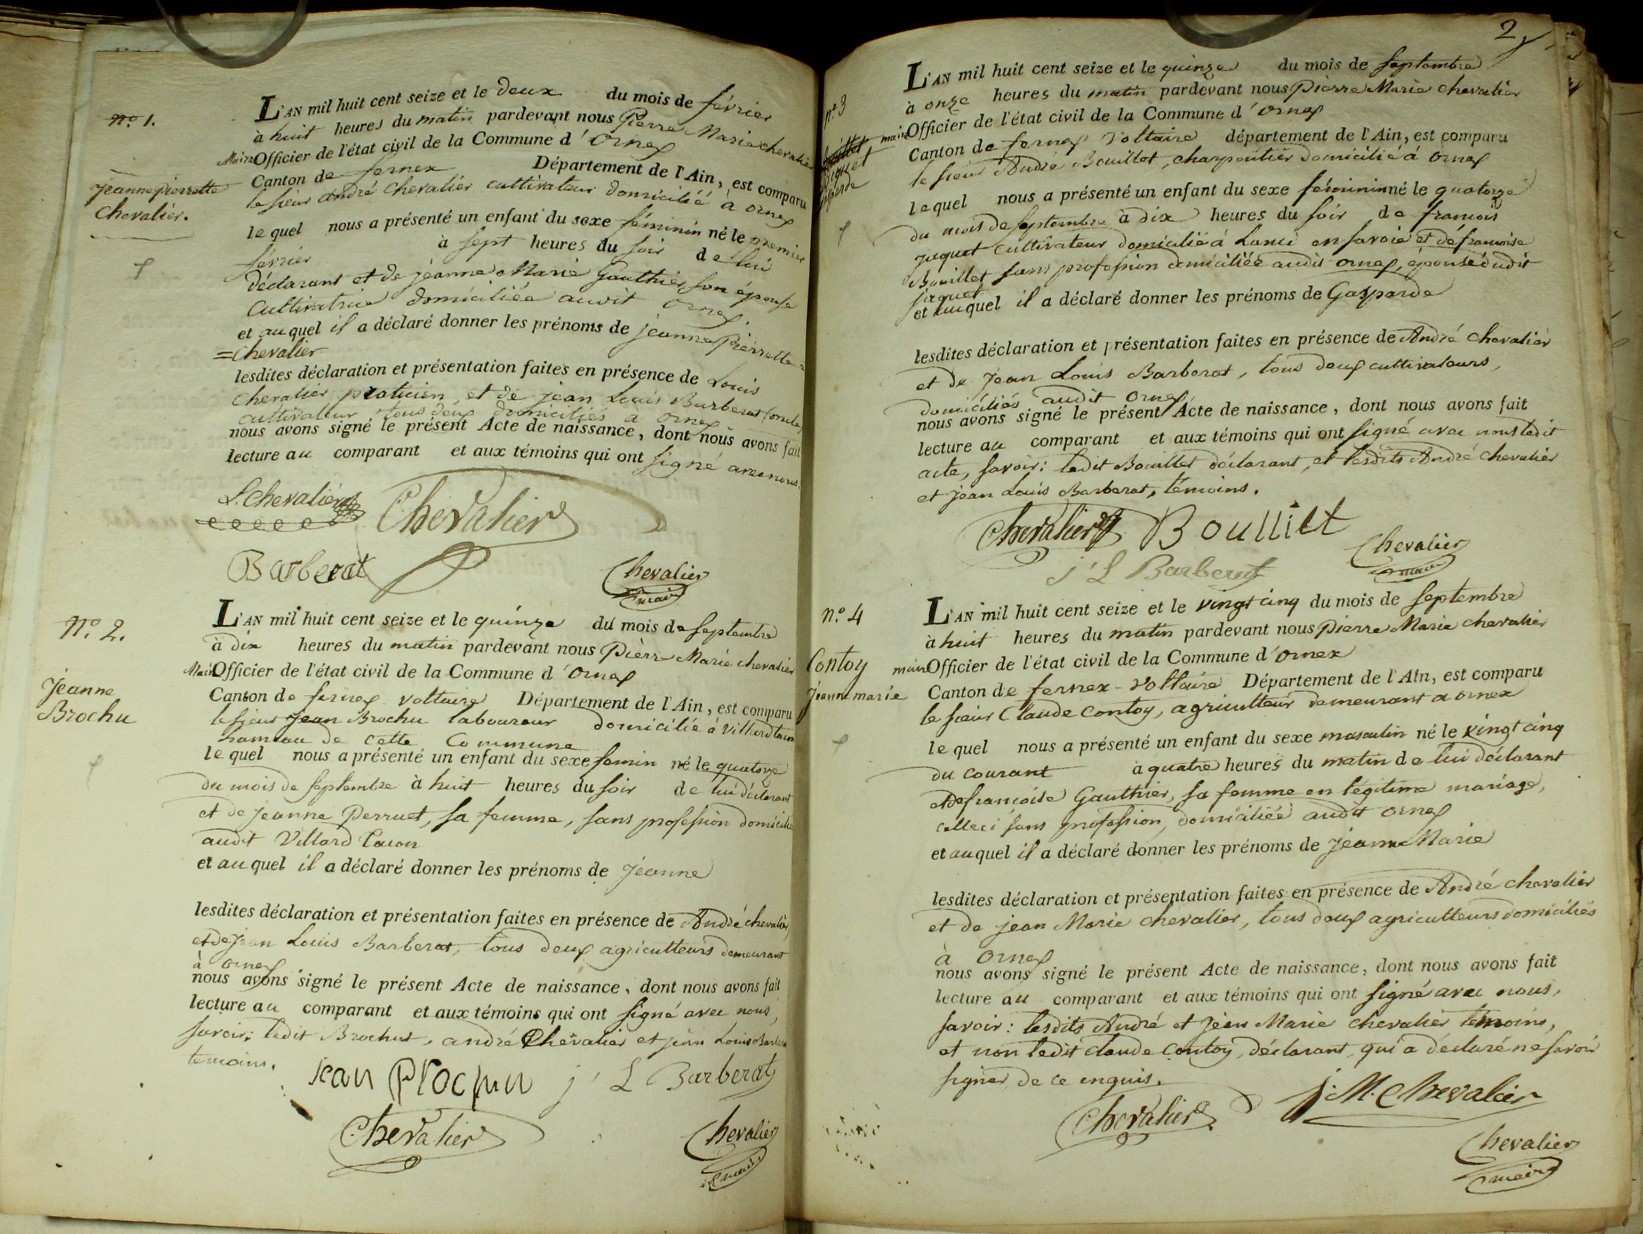 nº. 1.
Jeanne pierrette
Chevalier.
L'AN mil huit cent seize et le deux du mois de février
à huit heures du matin pardevant nous Pierre Marie chevalier
Maire Officier de l'état civil de la Commune d'Ornex
Canton de fernex Département de l'Ain, est comparu
le sieur andré Chevalier cultivateur domiciliée à ornex
le quel nous a présenté un enfant du sexe féminin né le premier
février à sept heures du soir de lui
déclarant et de jeanne Marie Gauthier son épouse
Cultivatrice domiciliée audit ornex
et au quel il a déclaré donner les prénoms de jeanne pierrette =
= Chevalier
lesdites déclaration et présentation faites en présence de Louis
Chevalier praticien, et de jean Louis Barberat
cultivateur tous deux domiciliés à ornex
nous avons signé le présent Acte de naissance, dont nous avons fait
lecture au comparant et aux témoins qui ont signé avec nous.
L. Chevalier
Chevalier
Barberat
Chevalier
maire
Nº. 2.
Jeanne
Brochu
L'AN mil huit cent seize et le quinze du mois de septembre
à dix heures du matin pardevant nous Pierre Marie chevalier
Maire Officier de l'état civil de la Commune d'Ornex
Canton de fernex voltaire Département de l'Ain, est comparu
le sieur Jean Brochu laboureur domiciliée à Villard tacon
hameau de cette Commune
le quel nous a présenté un enfant du sexe femin né le quatorze
du mois de septembre à huit heures du soir de lui déclarant
et de Jeanne Perruet, sa femme, sans profession domiciliée
audit Villard Tacon
et au quel il a déclaré donner les prénoms de Jéanne
lesdites déclaration et présentation faites en présence de André chevalier
et de Jean Louis Barberat, tous deux agriculteurs demeurant
à Ornex
nous avons signé le présent Acte de naissance, dont nous avons fait
lecture au comparant et aux témoins qui ont signé avec nous,
savoir: ledit Brochut, andré Chevalier et jean Louis Barberat
temoins.
Jean Brochu j L Barberat
Chevalier
Chevalier
maire
2
nº 3
L'AN mil huit cent seize et le quinze du mois de septembre
à onze heures du matin pardevant nous Pierre Marie chevalier
maire Officier de l'état civil de la Commune d'Ornex
Canton de fernex Voltaire département de l'Ain, est comparu
le sieur André Bouillet, charpentier domicilié à ornex
lequel nous a présenté un enfant du sexe féminin né le quatorze
du mois de septembre à dix heures du soir de francois
jiquet cultivateur domicilié à Lanci en savoie et de françoise
Bouillet sans profession domiciliée audit ornex, epouse dudit
jiquet
et auquel il a déclaré donner les prénoms de Gasparde
lesdites déclaration et présentation faites en présence de André chevalier
et de Jean Louis Barberat, tous deux cultivateurs,
domiciliés audit Ornex
nous avons signé le présent Acte de naissance, dont nous avons fait
lecture au comparant et aux témoins qui ont signé avec nous ledit
acte, savoir: ledit Bouillet déclarant, et lesdits André Chevalier
et Jean Louis Barberat, témoins.
Chevalier Boulliet
j L Barberat
Chevalier
maire
nº. 4
Contoy
Jeanne marie
L'AN mil huit cent seize et le vingt cinq du mois de septembre
à huit heures du matin pardevant nous pierre Marie chevalier
maire Officier de l'état civil de la Commune d'Ornex
Canton de fernex-Voltaire Département de l'Ain, est comparu
le sieur Claude Contoy, agriculteur demeurant à ornex
le quel nous a présenté un enfant du sexe masculin né le vingt cinq
du courant à quatre heures du matin de lui déclarant
et de françoise Gauthier, sa femme en légitime mariage,
celleci sans profession, domiciliée audit Ornex
et au quel il a déclaré donner les prénoms de Jéanne Marie
lesdites déclaration et présentation faites en présence de André chevalier
et de jean Marie chevalier, tous deux agriculteurs domiciliés
à Ornex
nous avons signé le présent Acte de naissance, dont nous avons fait
lecture au comparant et aux témoins qui ont signé avec nous,
savoir: lesdits André et Jean Marie chevalier témoins,
et non ledit claude Contoy, déclarant, qui a declaré ne savoir
signer de ce enquis.
Chevalier j. M. Chevalier
Chevalier
maire